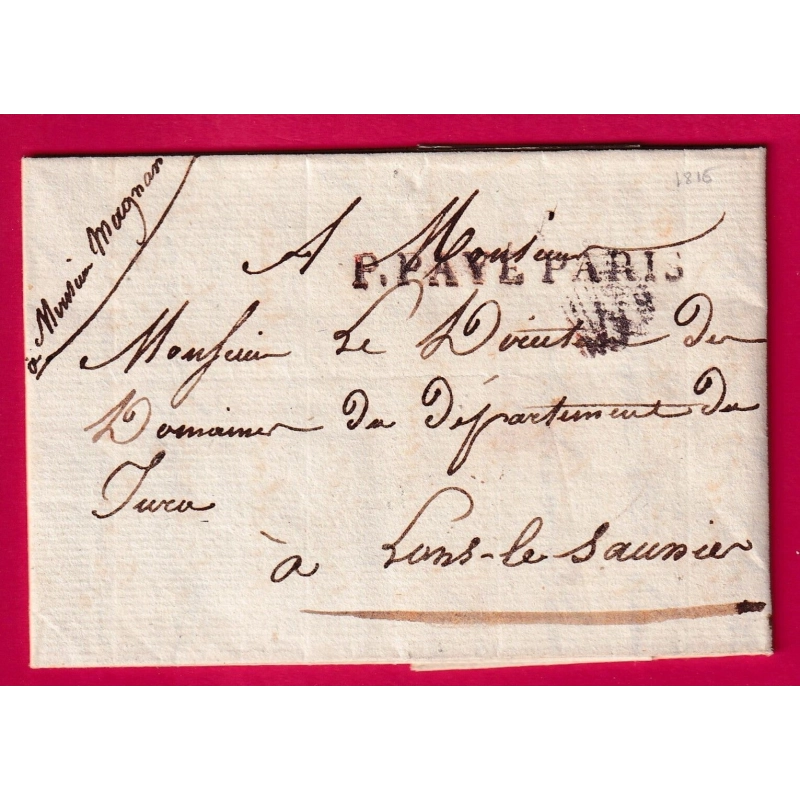 à Monsieur Magnan
1816
A Monsieur
P.PAYÉ PARIS
Monsieur Le Directeur des
Domaines du département du
Jura
à Lons-le Saunier